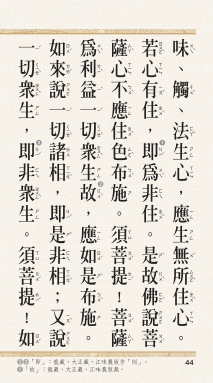 味、觸、法生心，應生無所住心。
若心有住，即❶為非住。是故佛說菩
薩心不應住色布施。須菩提！菩薩
為利益一切眾生故❷，應如是布施。
如來說一切諸相，即是非相；又說
一切眾生，即❸非眾生。須菩提！如
❶❸「即」：龍藏、大正藏、江味農版作「則」。
❷「故」：龍藏、大正藏、江味農版無。
44